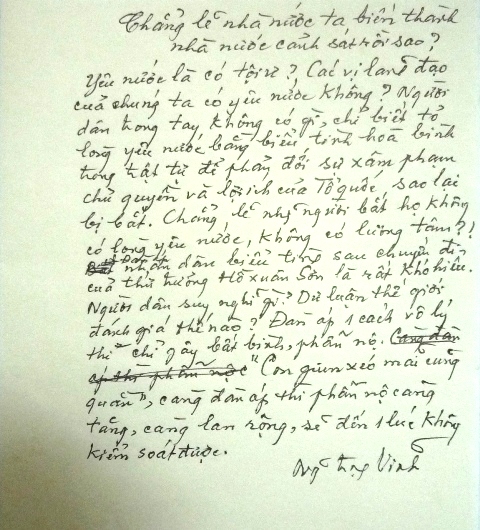 Chẳng lẽ nhà nước ta biến thành
nhà nước cảnh sát rồi sao?
Yêu nước là có tội ư? Các vị lãnh đạo
của chúng ta có yêu nước không? Người
dân trong tay không có gì, chỉ biết tỏ
lòng yêu nước bằng biểu tình hoà bình
trong trật tự để phản đối sự xâm phạm
chủ quyền và lợi ích của Tổ quốc, sao lại
bị bắt. Chẳng lẽ những người bắt họ không
có lòng yêu nước, không có lương tâm?!
Đàn áp nhân dân biểu tình sau chuyến đi
của thứ trưởng Hồ Xuân Sơn là rất khó hiểu.
Người dân suy nghĩ gì? Dư luận thế giới
đánh giá thế nào? Đàn áp 1 cách vô lý
thì chỉ gây bất bình, phẫn nộ. Càng đàn
áp thì phẫn nộ "Con giun xéo mãi cũng
quằn", càng đàn áp thì phẫn nộ càng
tăng, càng lan rộng, sẽ đến 1 lúc không
kiểm soát được.
Ng Trọng Vĩnh